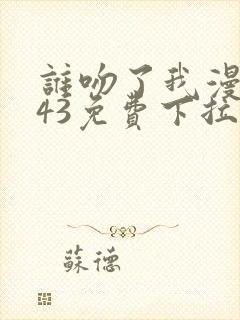 誰吻了我漫
43免費下拉
蘇德